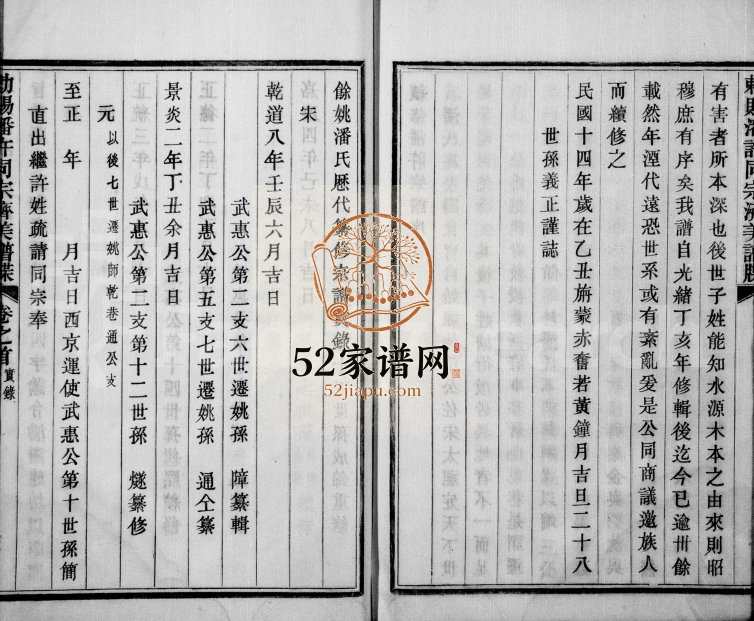 有害者所本深也後世子姓能知水源木本之由來則昭
穆庶有序矣我譜自光緒丁亥年修輯後迄今已逾卅餘
載然年湮代遠恐世系或有紊亂爰是公同商議邀族人
而續修之
民國十四年歲在乙丑旃蒙赤奮若黃鐘月吉旦二十八
世孫義正謹誌
餘姚潘氏歷代纂修宗譜實錄
宋
乾道八年壬辰六月吉日
武惠公第五支六世遷姚孫 障纂輯
武惠公第五支七世遷姚孫 通仝纂
景炎二年丁丑余月吉日
武惠公第 支第十二世孫 燧纂修
元 以後七世遷姚師乾巷通公支
至正 年 月吉日西京運使武惠公第十世孫簡
直出繼許姓疏請同宗奉
潘許同宗濟美譜牒 卷之首 實錄
52家谱网
52jiapu.com